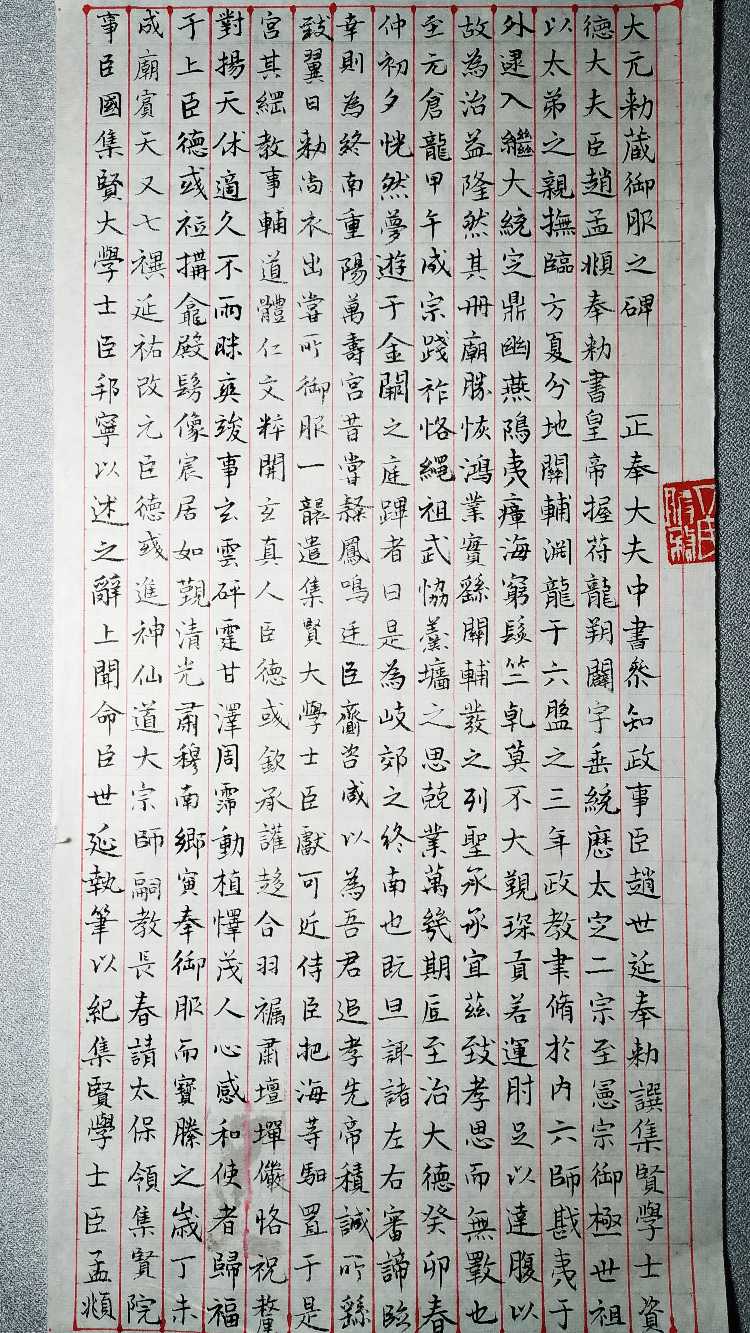 大元勅藏御服之碑 正奉大夫中書叅知政事臣趙世延奉勅譔集賢學士資
德大夫臣趙孟頫奉勅書皇帝握符龍朔闢宇垂統歷太定二宗至憲宗御極世祖
以太弟之親撫臨方夏分地關輔淵龍于六盤之三年政教聿脩於內六師戡夷于
外逮入繼大統定鼎幽燕隅夷瘴海窮髮竺乹莫不大覲琛貢若運肘足以達腹以
故為治益隆然其冊廟勝恢鴻業實繇關輔發之列聖承承宜茲致孝思而無斁也
至元倉龍甲午成宗踐祚恪繩祖武恊羹墻之思兢業萬幾期底至治大德癸卯春
仲初夕恍然夢遊于金闕之庭蹕者曰是為岐郊之終南也既旦諏諸左右審諦臨
幸則為終南重陽萬壽宮昔嘗疑鳳鳴廷臣齎咨咸以為吾君追孝先帝積誠所繇
致翼日勅尚衣出嘗所御服一襲遣集賢大學士臣獻可近侍臣把海等馹置于是
宮其綱教事輔道體仁文粹開玄真人臣德或欽承護趍合羽褵肅壇墠儼恪祝釐
對揚天休適久不雨昧爽竣事玄雲砰霆甘澤周霈動植懌茂人心感和使者歸福
于上臣德彧祗搆龕殿髣像宸居如覲清光肅穆南鄉寅奉御服而寶縢之歲丁未
成廟賓天又七禩延祐改元臣德彧進神仙道大宗師嗣教長春請太保領集賢院
事臣國集賢大學士臣邦寧以述之辭上聞命臣世延執筆以紀集賢學士臣孟頫